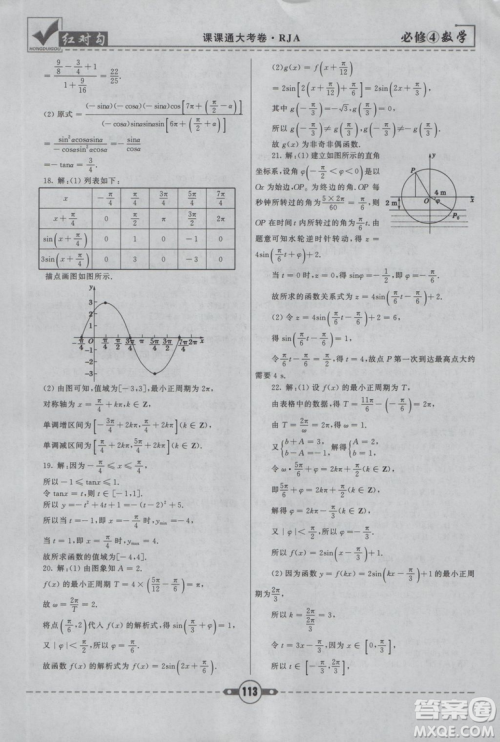 红对勾
课课通大考卷·RJA
必修④数学
9/8 - 3/4 + 1
1 + 9/16
= 22/25.
(2) 原式 = (-sinα)(-cosα)(-sinα)cos[7π+(π/2-α)]
(-cosα)sinαsinαsin[6π+(π/2+α)]
= sin²αcosαsinα
-cosαsin²αcosα
= -tanα = 3/4.
18. 解:(1) 列表如下:
x -π/4 π/4 3π/4 5π/4 7π/4
x+π/4 0 π/2 π 3π/2 2π
sin(x+π/4) 0 1 0 -1 0
3sin(x+π/4) 0 3 0 -3 0
描点画图如图所示.
(2) 由图可知,值域为[-3,3],最小正周期为2π,
对称轴为 x=π/4+kπ,k∈Z,
单调增区间为[-3π/4+2kπ,π/4+2kπ](k∈Z)
单调减区间为[π/4+2kπ,5π/4+2kπ](k∈Z).
19. 解:因为-π/4≤x≤π/4,
所以-1≤tanx≤1.
令 tanx=t,则 t∈[-1,1].
所以 y=-t²+4t+1=-(t-2)²+5.
所以当 t=-1,即 x=-π/4时,ymin=-4,
当 t=1,即 x=π/4时,ymax=4.
故所求函数的值域为[-4,4].
20. 解:(1) 由图象知 A=2.
f(x)的最小正周期 T=4×(5π/12-π/6)=π,
故 ω=2π/T=2.
将点(π/6,2)代入 f(x)的解析式,得 sin(π/3+φ)=1,
又|φ|<π/2,所以 φ=π/6.
故函数 f(x)的解析式为 f(x)=2sin(2x+π/6).
(2) g(x)=f(x+π/12)
=2sin[2(x+π/12)+π/6]=2sin(2x+π/3).
其中 g(-π/3)=-√3,g(π/3)=0,
所以 g(-π/3)≠g(π/3),g(-π/3)≠-g(π/3).
故 g(x)为非奇非偶函数.
21. 解:(1) 建立如图所示的直角
坐标系,设角 φ(-π/2<φ<0)是以
Ox 为始边,OP₀ 为终边的角,OP 每
秒钟内所转过的角为(5×2π/60)=π/6.
由 OP 在时间 t(s)内所转过的角,由
题意可知水轮逆时针转动,得 z=4sin(π/6t+φ)+2.
当 t=0 时,z=0,得 sinφ=-1/2,即 φ=-π/6.
故所求的函数关系式为 z=4sin(π/6t-π/6)+2.
(2) 令 z=4sin(π/6t-π/6)+2=6,
得 sin(π/6t-π/6)=1.
令π/6t-π/6=π/2,得 t=4,故点 P 第一次到达最高点大约
需要 4 s.
22. 解:(1) 设 f(x)的最小正周期为 T,
由表格中的数据,得 T=11π/6-(-π/6)=2π,
由 T=2π/ω,得 ω=1.
又{b+A=3,
b-A=-1,解得{A=2,
b=1.
令 ω·5π/6+φ=π/2+2kπ(k∈Z),
即5π/6+φ=π/2+2kπ(k∈Z),
解得 φ=2kπ-π/3(k∈Z).
又|φ|<π/2,所以 φ=-π/3.
所以 f(x)=2sin(x-π/3)+1.
(2) 因为函数 y=f(kx)=2sin(kx-π/3)+1 的最小正周期为
2π/3,
所以 k=2π/(2π/3)=3.
令 t=3x-π/3,因为 x∈[0,π/3],所以 t∈[-π/3,2π/3],
113